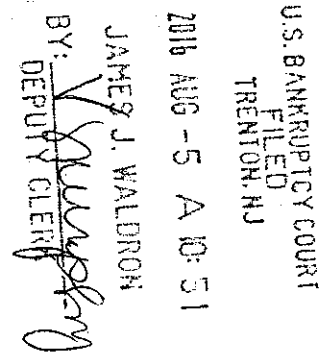 U.S. BANKRUPTCY COURT
FILED
TRENTON, NJ
2016 AUG -5 A 10:51
JAMES J. WALDRON
BY:
DEPUTY CLERK